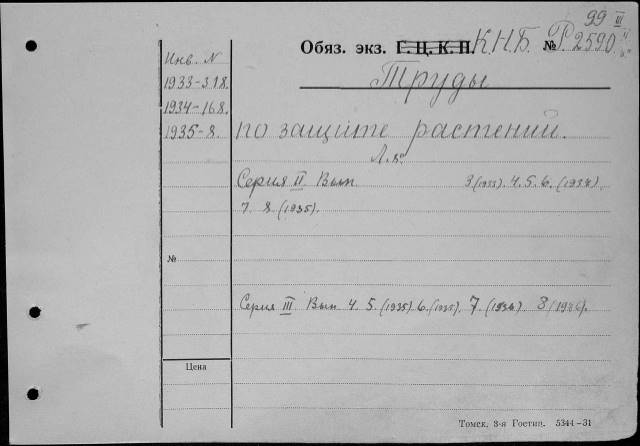 99 III
Обяз. экз. Г. Ц. К. П. К.Н.Б. № Р2590
Инв. N
1933-318.
1934-168.
1935-8.
Труды
по защите растений.
Серия II Вып 3 (1933). 4. 5. 6. (1934)
7. 8 (1935).
№
Серия III Вып 4. 5. (1935). 6. (1935). 7. (1936) 8 (1936).
Цена
Томск, 3-я Гостип. 5344-31